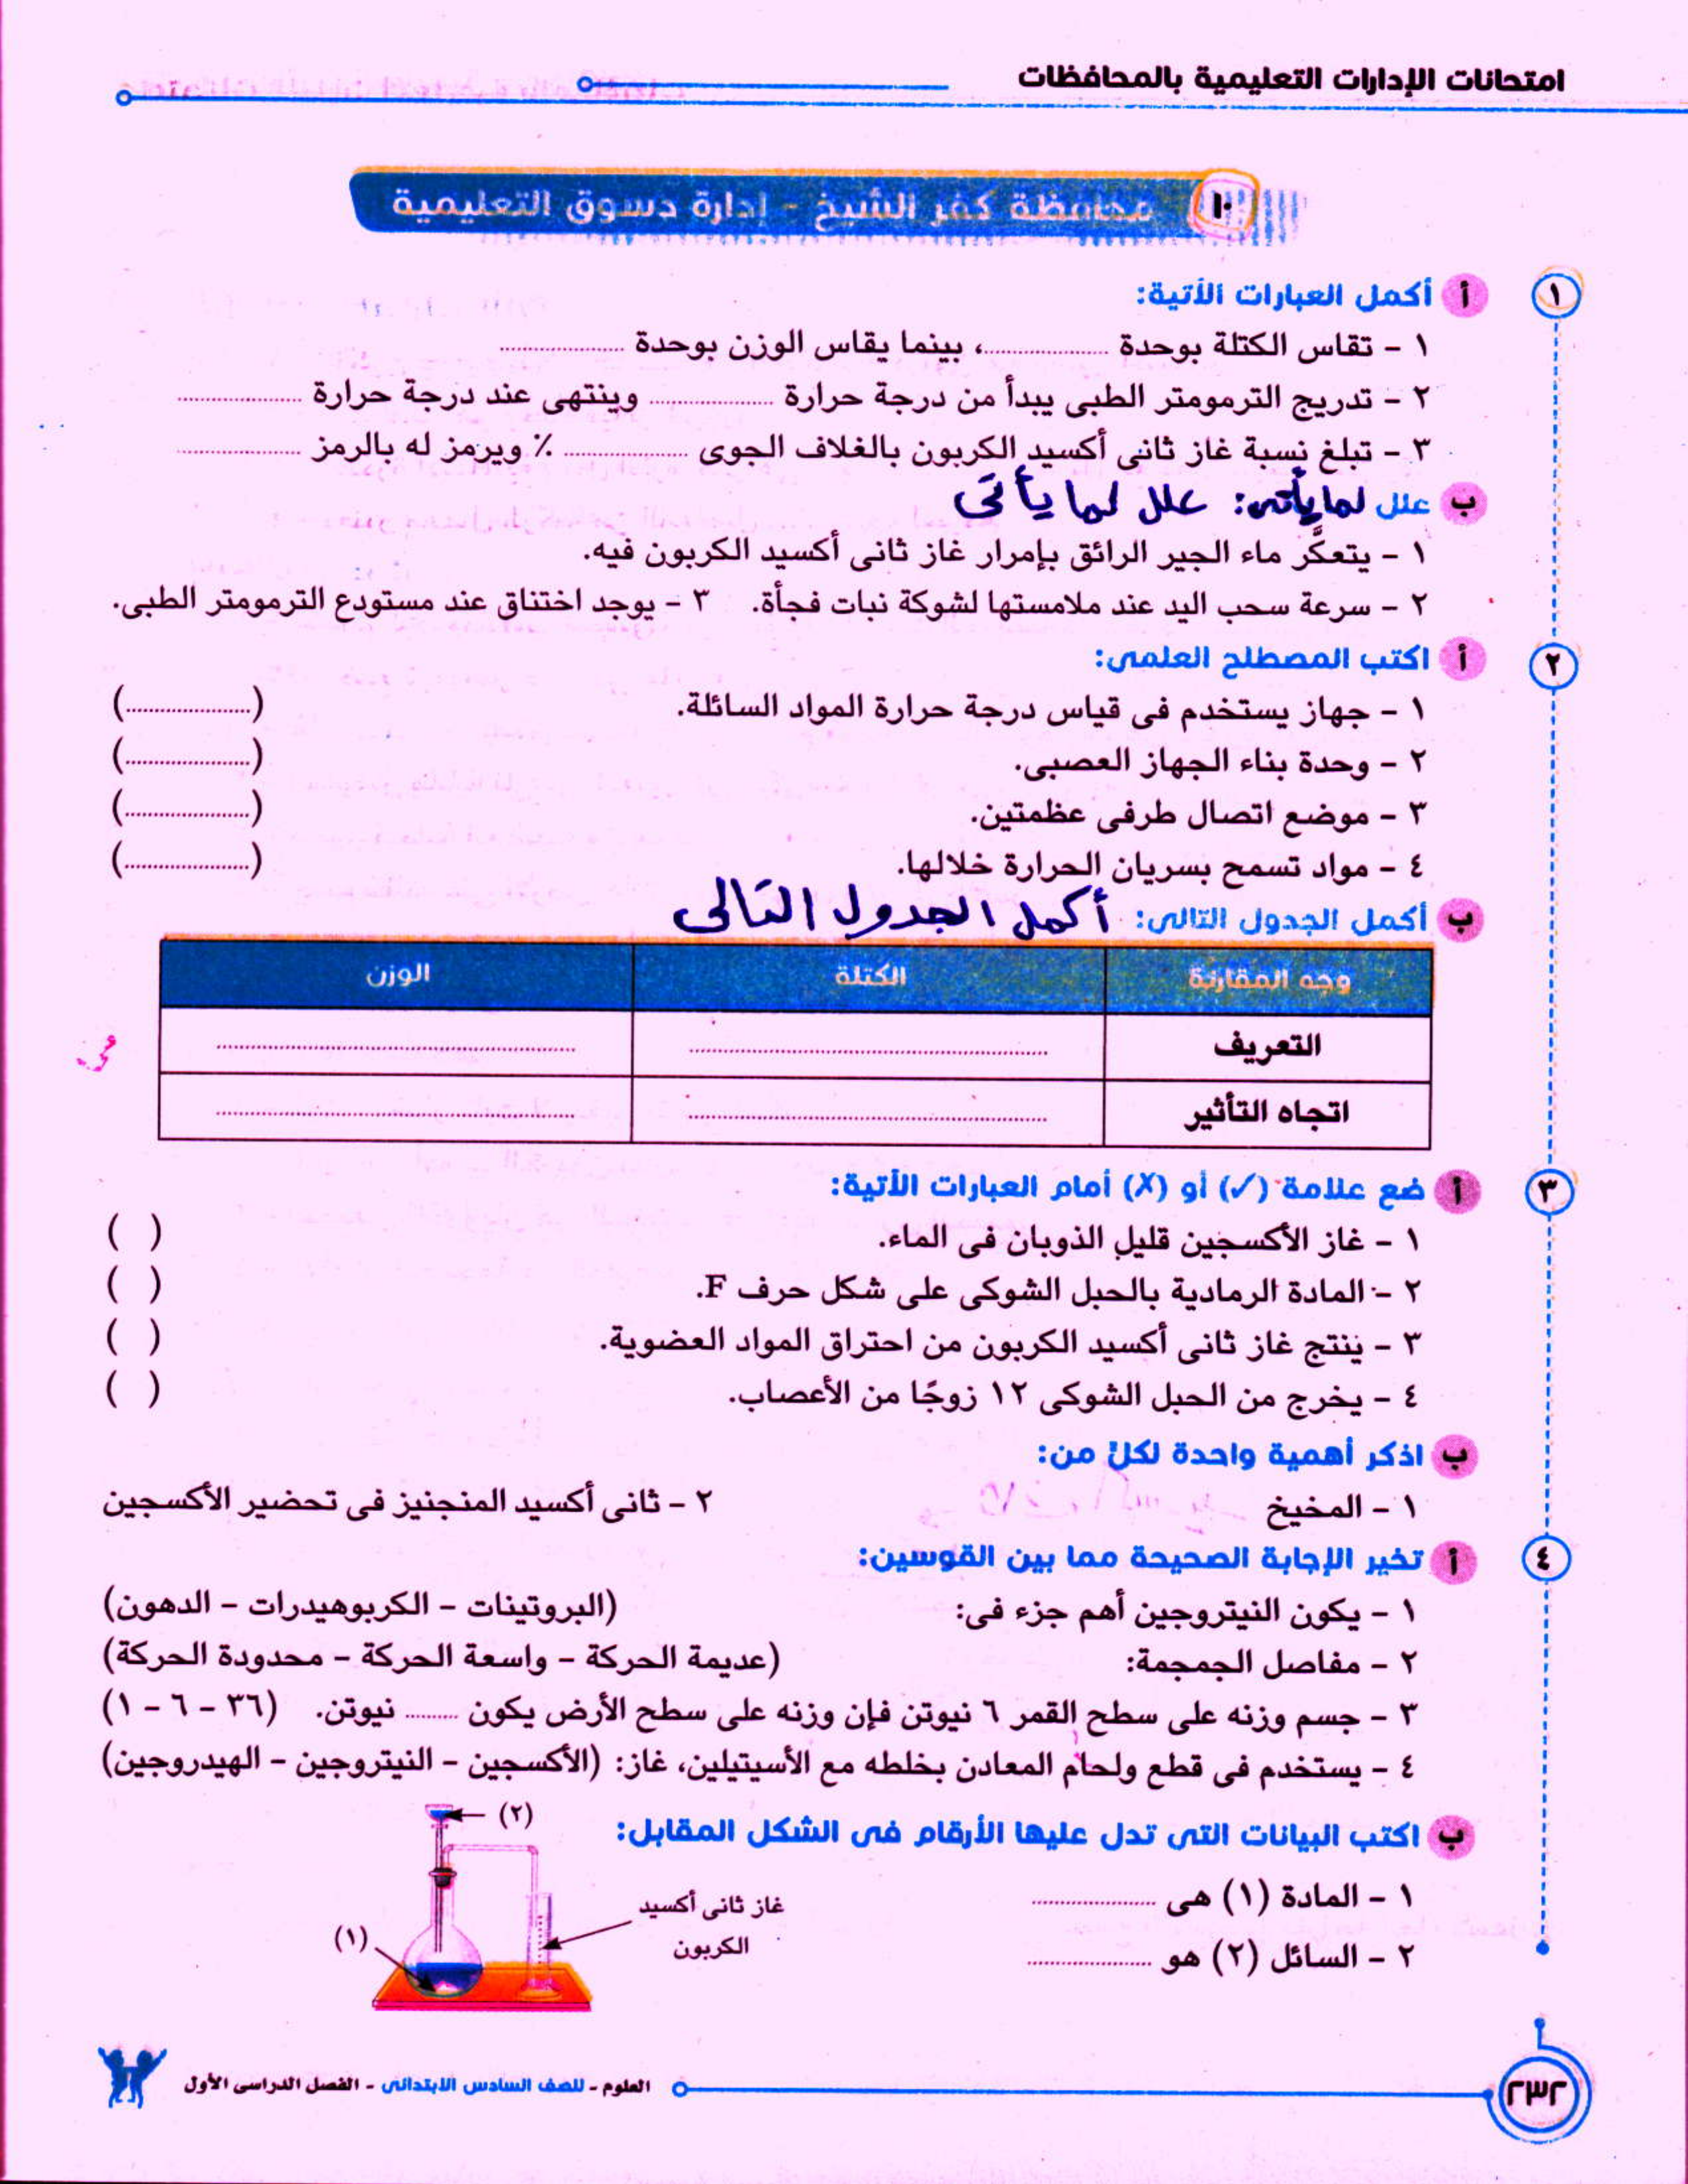 امتحانات الإدارات التعليمية بالمحافظات
١٠ محافظة كفر الشيخ - إدارة دسوق التعليمية
١ أ أكمل العبارات الأتية:
١ - تقاس الكتلة بوحدة ....................، بينما يقاس الوزن بوحدة ....................
٢ - تدريج الترمومتر الطبى يبدأ من درجة حرارة .................... وينتهى عند درجة حرارة ....................
٣ - تبلغ نسبة غاز ثانى أكسيد الكربون بالغلاف الجوى .................... ٪ ويرمز له بالرمز ....................
ب علل لما يأتى: علل لما يأتى
١ - يتعكَّر ماء الجير الرائق بإمرار غاز ثانى أكسيد الكربون فيه.
٢ - سرعة سحب اليد عند ملامستها لشوكة نبات فجأة. ٣ - يوجد اختناق عند مستودع الترمومتر الطبى.
٢ أ اكتب المصطلح العلمى:
١ - جهاز يستخدم فى قياس درجة حرارة المواد السائلة. (....................)
٢ - وحدة بناء الجهاز العصبى. (....................)
٣ - موضع اتصال طرفى عظمتين. (....................)
٤ - مواد تسمح بسريان الحرارة خلالها. (....................)
ب أكمل الجدول التالى: أكمل الجدول التالى
وجه المقارنة الكتلة الوزن
التعريف .................... ....................
اتجاه التأثير .................... ....................
٣ أ ضع علامة (✓) أو (✗) أمام العبارات الأتية:
١ - غاز الأكسجين قليل الذوبان فى الماء. ( )
٢ - المادة الرمادية بالحبل الشوكى على شكل حرف F. ( )
٣ - ينتج غاز ثانى أكسيد الكربون من احتراق المواد العضوية. ( )
٤ - يخرج من الحبل الشوكى ١٢ زوجًا من الأعصاب. ( )
ب اذكر أهمية واحدة لكلٍّ من:
١ - المخيخ ٢ - ثانى أكسيد المنجنيز فى تحضير الأكسجين
٤ أ تخير الإجابة الصحيحة مما بين القوسين:
١ - يكون النيتروجين أهم جزء فى: (البروتينات - الكربوهيدرات - الدهون)
٢ - مفاصل الجمجمة: (عديمة الحركة - واسعة الحركة - محدودة الحركة)
٣ - جسم وزنه على سطح القمر ٦ نيوتن فإن وزنه على سطح الأرض يكون ......... نيوتن. (٣٦ - ٦ - ١)
٤ - يستخدم فى قطع ولحام المعادن بخلطه مع الأسيتيلين، غاز: (الأكسجين - النيتروجين - الهيدروجين)
ب اكتب البيانات التى تدل عليها الأرقام فى الشكل المقابل:
(٢)
١ - المادة (١) هى ....................
غاز ثانى أكسيد
الكربون
(١)
٢ - السائل (٢) هو ....................
٢٣٢
العلوم - للصف السادس الابتدائى - الفصل الدراسى الأول